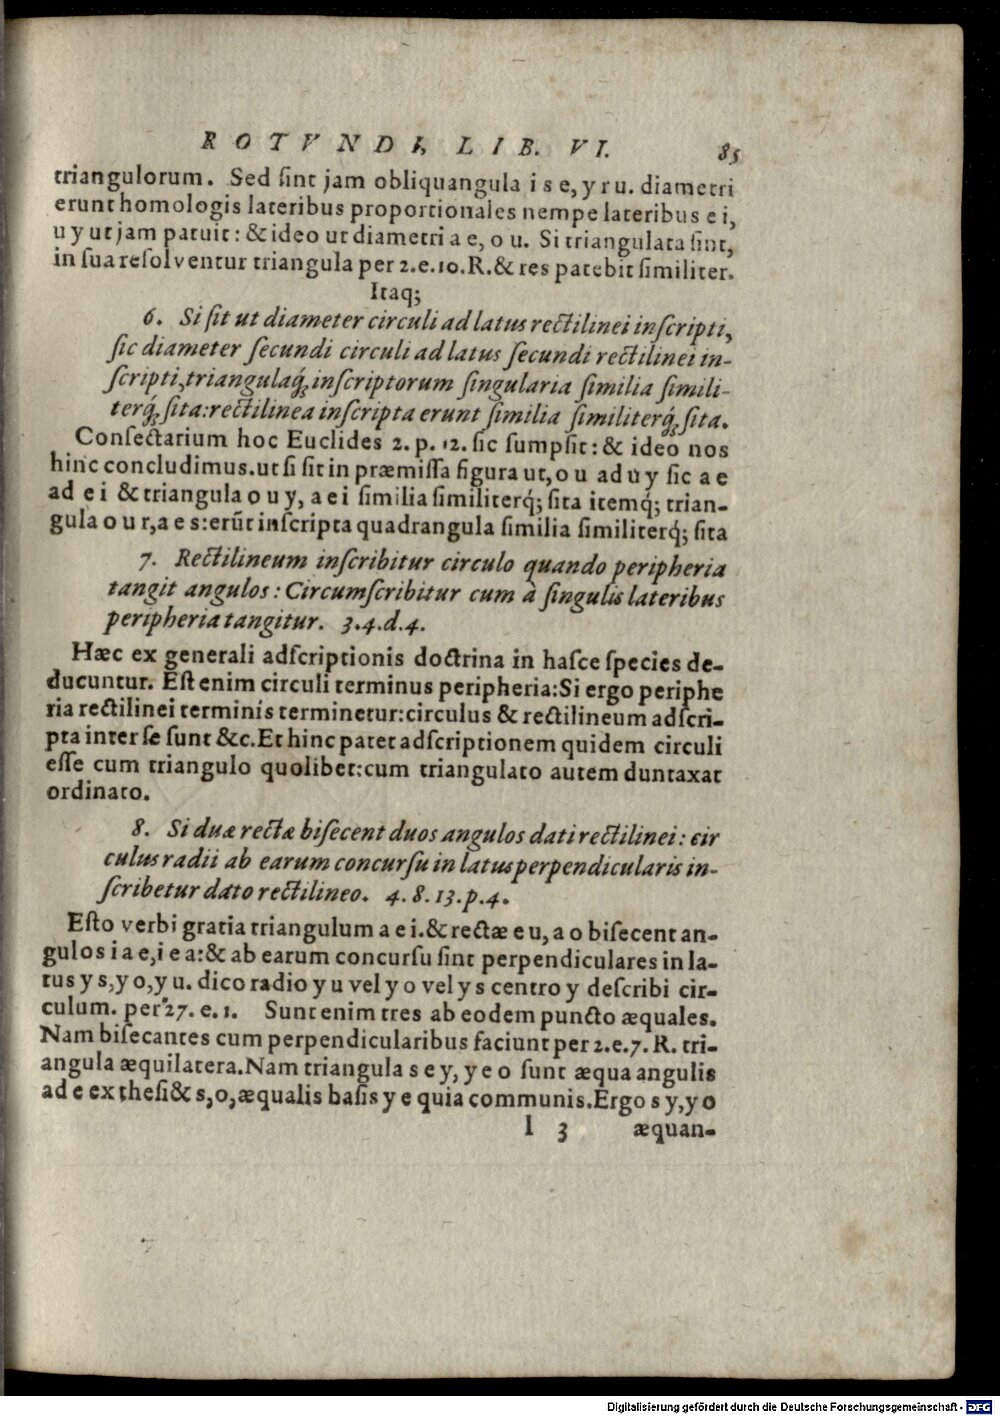 ROTVNDI, LIB. VI. 85
triangulorum. Sed ſint jam obliquangula i s e, y r u. diametri
erunt homologis lateribus proportionales nempe lateribus e i,
u y ut jam patuit: & ideo ut diametri a e, o u. Si triangulata ſint,
in ſua reſolventur triangula per 2. e. 10. R. & res patebit ſimiliter.
Itaq;
6. Si ſit ut diameter circuli ad latus rectilinei inſcripti,
ſic diameter ſecundi circuli ad latus ſecundi rectilinei in-
ſcripti, triangulaq́; inſcriptorum ſingularia ſimilia ſimili-
terq́; ſita: rectilinea inſcripta erunt ſimilia ſimiliterq́; ſita.
Conſectarium hoc Euclides 2. p. 12. ſic ſumpſit: & ideo nos
hinc concludimus. ut ſi ſit in præmiſſa figura ut, o u ad u y ſic a e
ad e i & triangula o u y, a e i ſimilia ſimiliterq́; ſita itemq́; trian-
gula o u r, a e s: erūt inſcripta quadrangula ſimilia ſimiliterq́; ſita
7. Rectilineum inſcribitur circulo quando peripheria
tangit angulos: Circumſcribitur cum à ſingulis lateribus
peripheria tangitur. 3. 4. d. 4.
Hæc ex generali adſcriptionis doctrina in haſce ſpecies de-
ducuntur. Eſt enim circuli terminus peripheria: Si ergo periphe
ria rectilinei terminis terminetur: circulus & rectilineum adſcri-
pta inter ſe ſunt &c. Et hinc patet adſcriptionem quidem circuli
eſſe cum triangulo quolibet: cum triangulato autem duntaxat
ordinato.
8. Si duæ rectæ biſecent duos angulos dati rectilinei: cir
culus radii ab earum concurſu in latus perpendicularis in-
ſcribetur dato rectilineo. 4. 8. 13. p. 4.
Eſto verbi gratia triangulum a e i. & rectæ e u, a o biſecent an-
gulos i a e, i e a: & ab earum concurſu ſint perpendiculares in la-
tus y s, y o, y u. dico radio y u vel y o vel y s centro y deſcribi cir-
culum. per 27. e. 1. Sunt enim tres ab eodem puncto æquales.
Nam biſecantes cum perpendicularibus faciunt per 2. e. 7. R. tri-
angula æquilatera. Nam triangula s e y, y e o ſunt æqua angulis
ad e ex theſi & s, o, æqualis baſis y e quia communis. Ergo s y, y o
l 3 æquan-
Digitalisierung gefördert durch die Deutsche Forschungsgemeinschaft - DFG